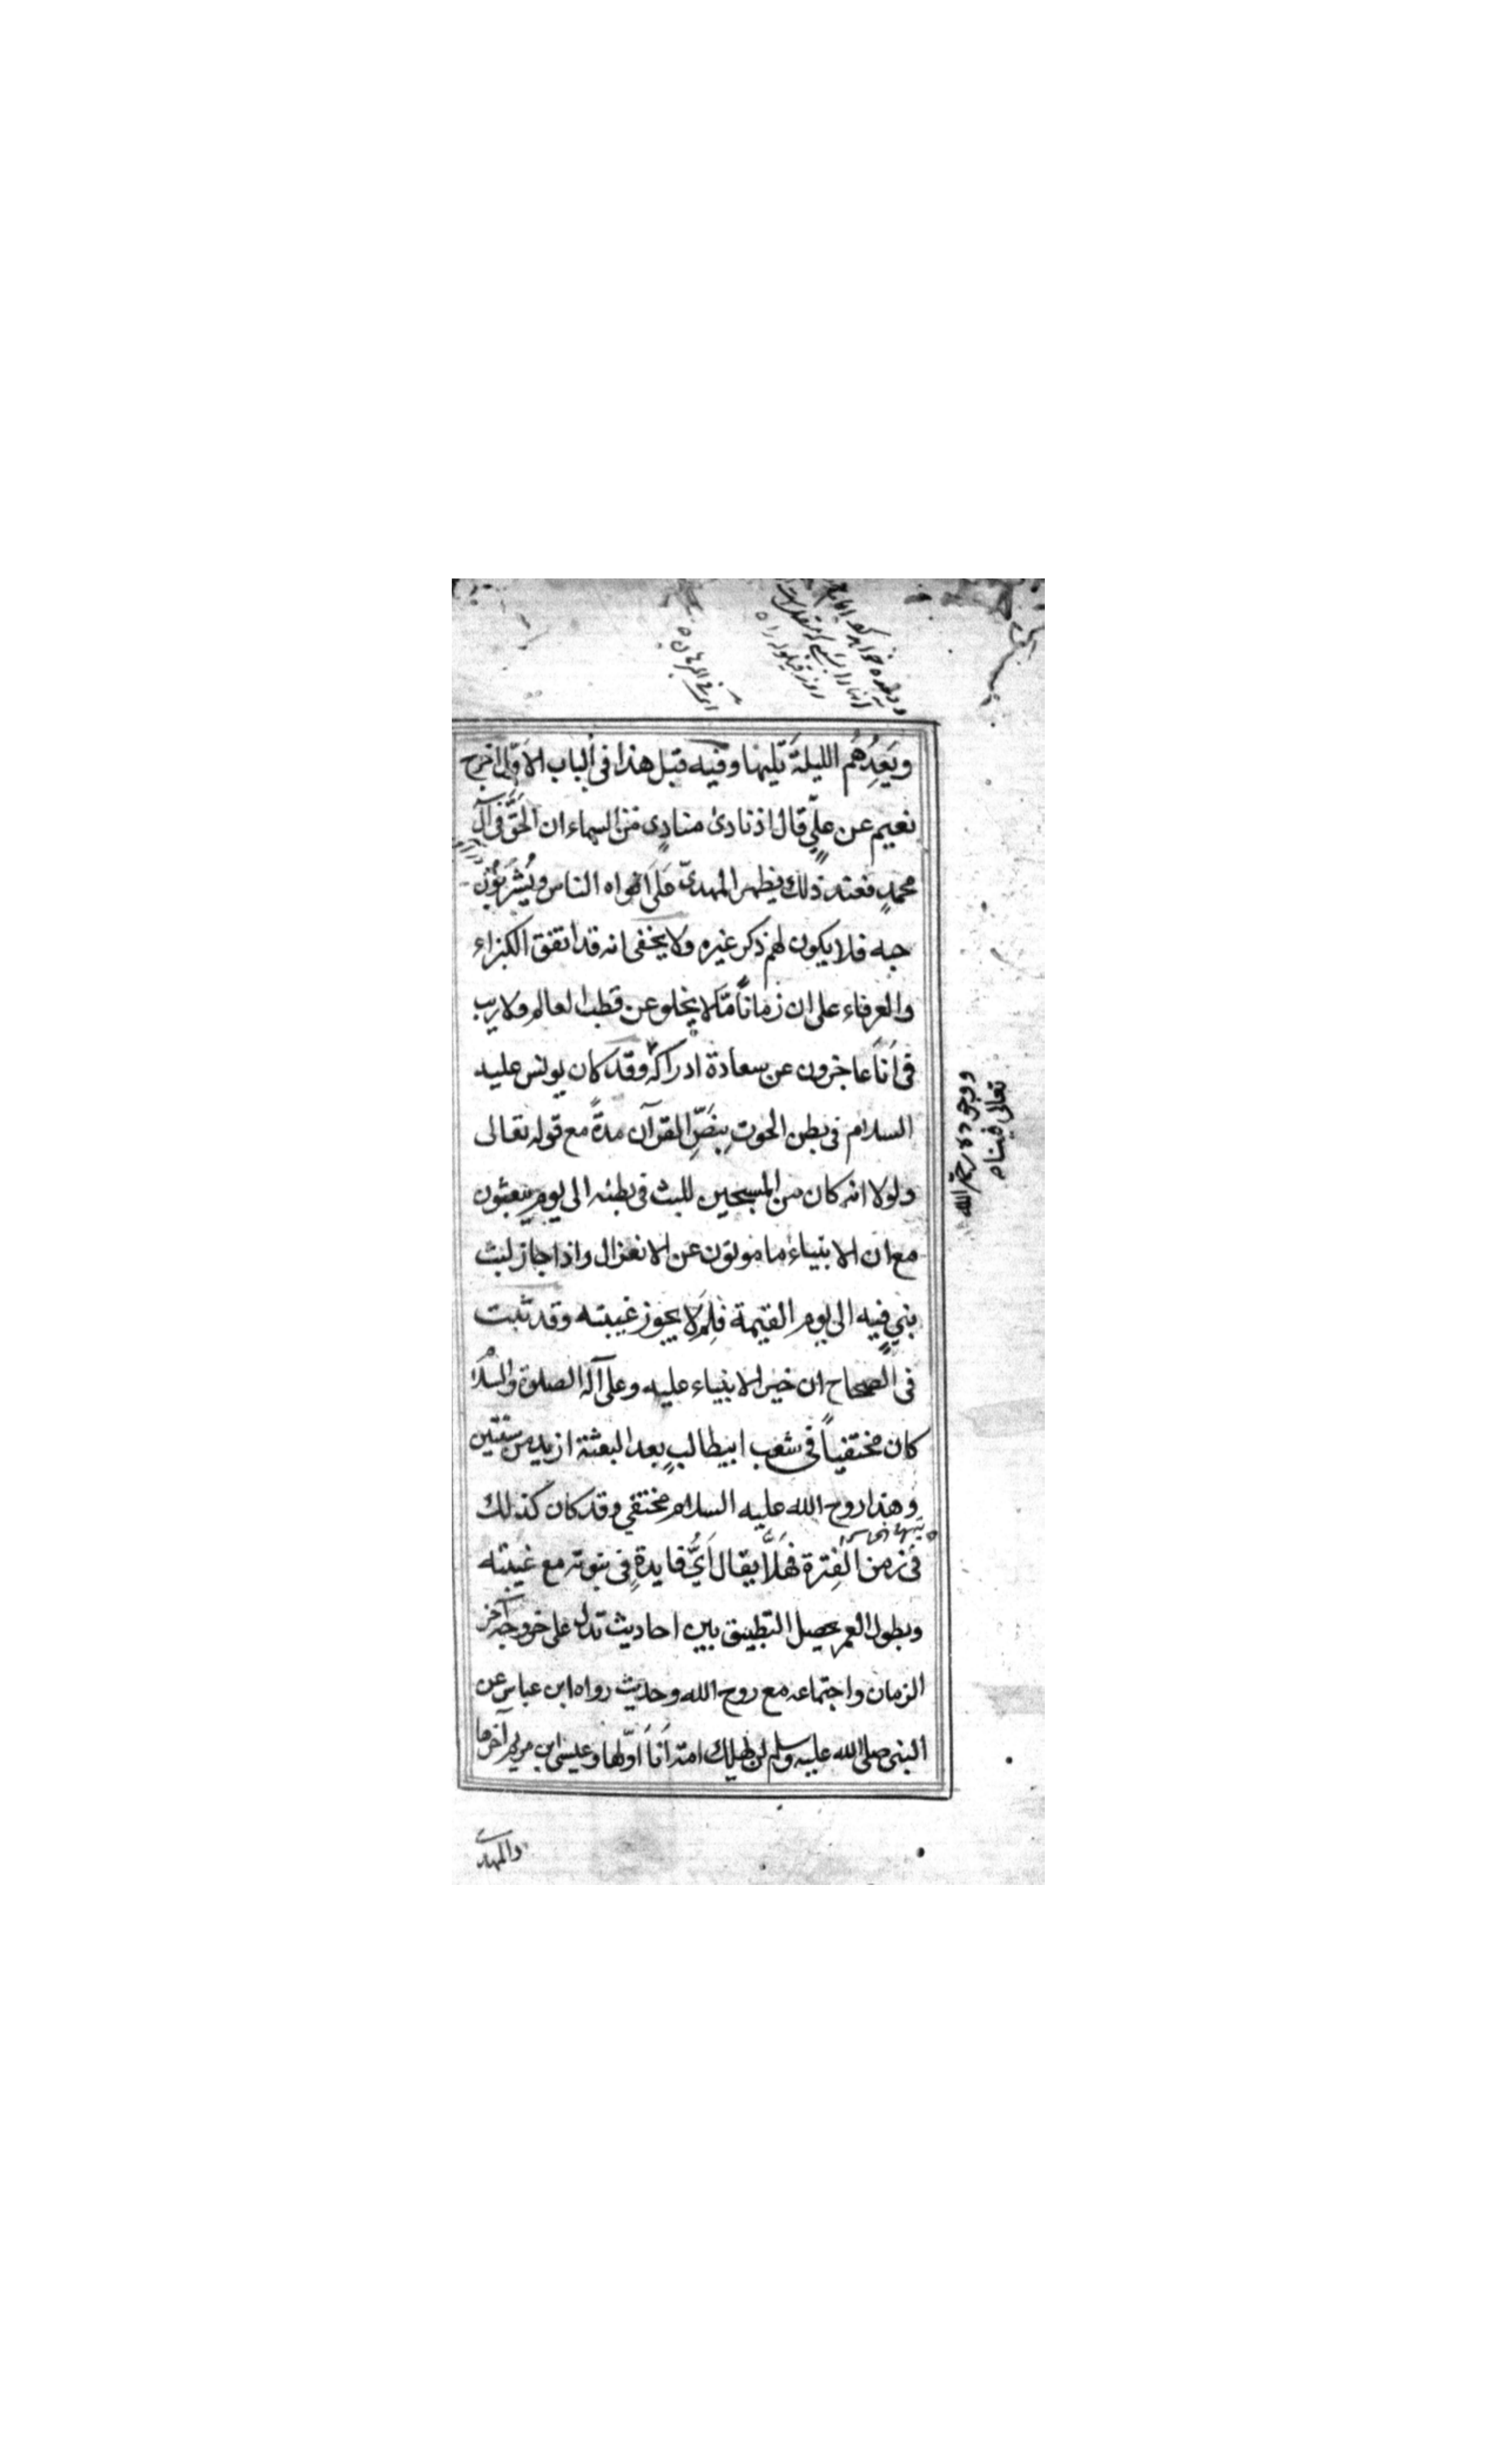 ويَعِدُهُم الليلةَ تليها وفيه قبل هذا فى الباب الاوّل اخرج
نعيم عن عليٍّ قال اذ نادى منادٍى من السماء ان الحَقَّ فى آل
محمدٍ فعند ذلك يظهر المهدىّ عَلَى افواه الناس ويُشْرَبُون
حبه فلا يكون لهم ذكر غيره ولا يخفى انه قد اتفق الكبراء
والعرفاء على ان زماناً مّا لا يخلو عن قطب العالم ولا ريب
فى اَنا عاجزون عن سعادة ادراكه وقد كان يونس عليه
السلام فى بطن الحوت بِنَصِّ القرآن مدةً مع قوله تعالى
ولولا انه كان من المسبحين للبث فى بطنه الى يوم يبعثون
مع ان الانبياء مامونون عن الانعزال واذا جاز لبث
نبيٍ فيه الى يوم القيمة فلِمَ لا يجوز غيبته وقد ثبت
فى الصحاح ان خير الانبياء عليه وعلى آله الصلوة والسلام
كان مختفياً فى شعب ابيطالبٍ بعد البعثة ازيد من سنتين
وهذا روح الله عليه السلام مختفي وقد كان كذلك
فى زمن الفِترة فهَلَّا يقال اَيُّ فايدةٍ فى نبوته مع غيبته
وبطول العمر يحصل التطبيق بين احاديث تدل على خروجه آخر
الزمان واجتماعه مع روح الله وحديث رواه ابن عباس عن
النبى صلى الله عليه وسلم لن يهلك امة اَنَا اوّلها وعيسى ابن مريم آخرها
والمهدى
ووجوده رحمة الله
تعالى فينا